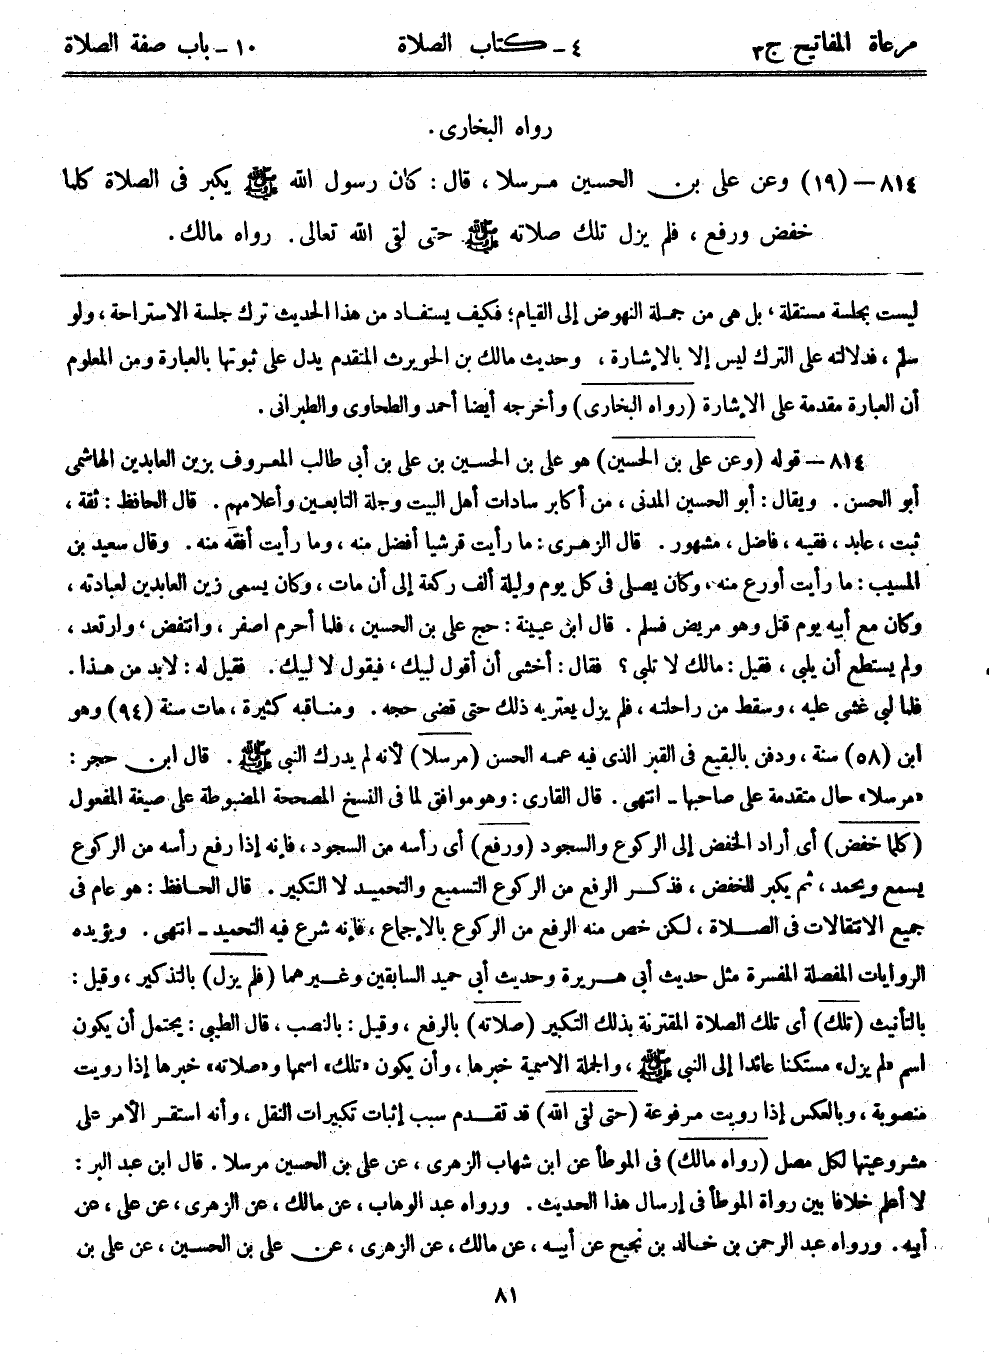 مرعاة المفاتيح ج٣ ٤ - كتاب الصلاة ١٠ - باب صفة الصلاة
رواه البخارى .
٨١٤ – (١٩) وعن على بن الحسين مرسلا ، قال : كان رسول الله ﷺ يكبر فى الصلاة كلما
خفض ورفع ، فلم يزل تلك صلاته ﷺ حتى لقى الله تعالى . رواه مالك .
ليست بجلسة مستقلة ، بل هى من جملة النهوض إلى القيام؛ فكيف يستفاد من هذا الحديث ترك جلسة الاستراحة ، ولو
سلم ، فدلالته على الترك ليس إلا بالإشارة ، وحديث مالك بن الحويرث المتقدم يدل على ثبوتها بالعبارة ومن المعلوم
أن العبارة مقدمة على الإشارة (رواه البخارى) وأخرجه أيضا أحمد والطحاوى والطبرانى .
٨١٤ – قوله (وعن على بن الحسين) هو على بن الحسين بن على بن أبي طالب المعروف بزين العابدين الهاشمى
أبو الحسن . ويقال : أبو الحسين المدنى ، من أكابر سادات أهل البيت وجلة التابعين وأعلامهم . قال الحافظ : ثقة ،
ثبت ، عابد ، فقيه ، فاضل ، مشهور . قال الزهرى : ما رأيت قرشيا أفضل منه ، وما رأيت أفقه منه . وقال سعيد بن
المسيب : ما رأيت أورع منه ، وكان يصلى فى كل يوم وليلة ألف ركعة إلى أن مات ، وكان يسمى زين العابدين لعبادته ،
وكان مع أبيه يوم قتل وهو مريض فسلم . قال ابن عيينة : حج على بن الحسين ، فلما أحرم اصفر ، وانتفض ، وارتعد ،
ولم يستطع أن يلبى ، فقيل : مالك لا تلبى ؟ فقال : أخشى أن أقول لبيك ، فيقول لا لبيك . فقيل له : لابد من هذا .
فلما لبى غشى عليه ، وسقط من راحلته ، فلم يزل يعتريه ذلك حتى قضى حجه . ومناقبه كثيرة ، مات سنة (٩٤) وهو
ابن (٥٨) سنة ، ودفن بالبقيع فى القبر الذى فيه عمه الحسن (مرسلا) لأنه لم يدرك النبى ﷺ . قال ابن حجر :
«مرسلا» حال متقدمة على صاحبها - انتهى . قال القارى : وهو موافق لما فى النسخ المصححة المضبوطة على صيغة المفعول
(كلما خفض) أى أراد الخفض إلى الركوع والسجود (ورفع) أى رأسه من السجود ، فإنه إذا رفع رأسه من الركوع
يسمع ويحمد ، ثم يكبر للخفض ، فذكر الرفع من الركوع التسميع والتحميد لا التكبير . قال الحافظ : هو عام فى
جميع الانتقالات فى الصلاة ، لكن خص منه الرفع من الركوع بالإجماع ، فإنه شرع فيه التحميد - انتهى . ويؤيده
الروايات المفصلة المفسرة مثل حديث أبي هريرة وحديث أبي حميد السابقين وغيرهما (فلم يزل) بالتذكير ، وقيل :
بالتأنيث (تلك) أى تلك الصلاة المقترنة بذلك التكبير (صلاته) بالرفع ، وقيل : بالنصب ، قال الطيبى : يحتمل أن يكون
اسم «لم يزل» مستكنا عائدا إلى النبى ﷺ ، والجملة الاسمية خبرها ، وأن يكون «تلك» اسمها و«صلاته» خبرها إذا رويت
منصوبة ، وبالعكس إذا رويت مرفوعة (حتى لقى الله) قد تقدم سبب إثبات تكبيرات النقل ، وأنه استقر الأمر على
مشروعيتها لكل مصل (رواه مالك) فى الموطأ عن ابن شهاب الزهرى ، عن على بن الحسين مرسلا . قال ابن عبد البر :
لا أعلم خلافا بين رواة الموطأ فى إرسال هذا الحديث . ورواه عبد الوهاب ، عن مالك ، عن الزهرى ، عن على ، عن
أبيه . ورواه عبد الرحمن بن خالد بن نجيح عن أبيه ، عن مالك ، عن الزهرى ، عن على بن الحسين ، عن على بن
٨١